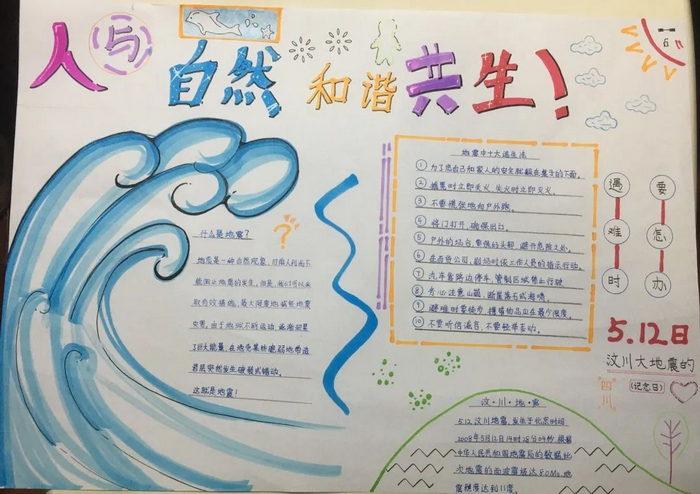 人与自然和谐共生!
什么是地震?
地震是一种自然现象,
能阻止地震的发生,但是,我们可以采
取有效措施,最大限度地减轻地震
灾害。由于地球不断运动,逐渐积累
了巨大能量,在地壳某些脆弱地带造
岩层突然发生破裂或错动。
这就是地震!
地震中十大逃生法
① 为了您自己和家人的安全躲在桌子的下面。
② 摇晃时立即关火,失火时立即灭火。
③ 不要慌张地向户外跑。
④ 将门打开,确保出口。
⑤ 户外的场合,要保护头部,避开危险之处。
⑥ 在百货公司、剧场时依工作人员的指示行动。
⑦ 汽车靠路边停车,管制区域禁止行驶
⑧ 务必注意山崩、断崖落石或海啸。
⑨ 避难时要徒步,携带物品应在最少限度。
⑩ 不要听信谣言,不要轻举妄动。
遇难时
要怎办
5.12日
汶川大地震的
四川
(纪念日)
汶·川·地·震
5.12汶川地震,发生于北京时间
2008年5月12日14时28分04秒,根据
中华人民共和国地震局的数据,此
次地震的面波震级达8.0Ms,地
震烈度达到11度。